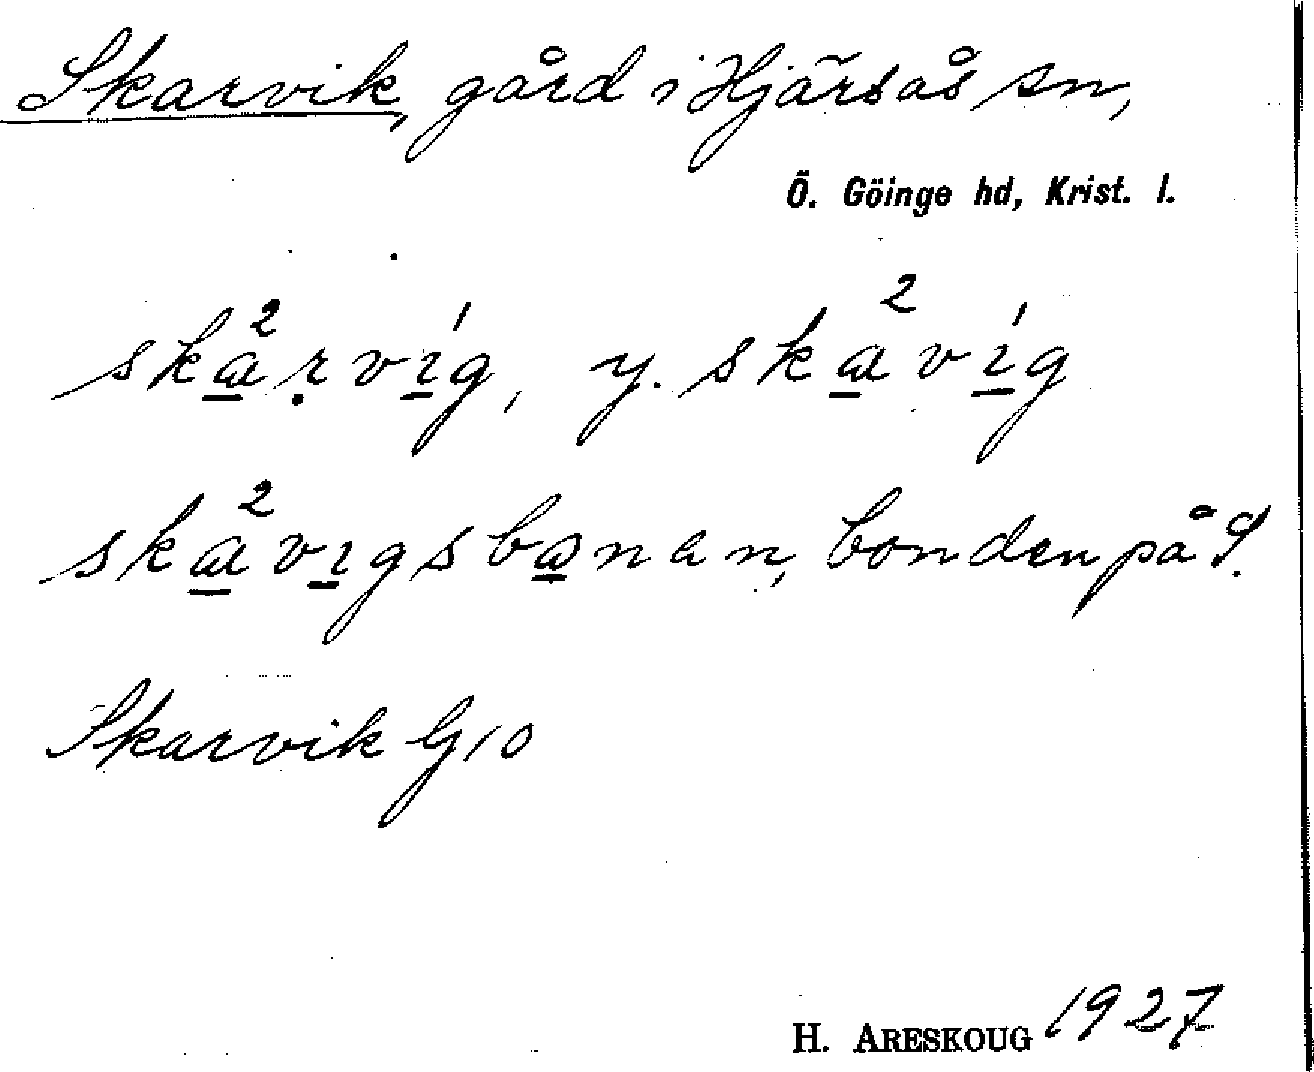 Skarvik, gård i Hjärsås sn,
Ö. Göinge hd, Krist. l.
ska²rvi´g, y. ska²vi´g
ska²vigsbonan, bonden på S.
Skarvik G10
H. ARESKOUG 1927